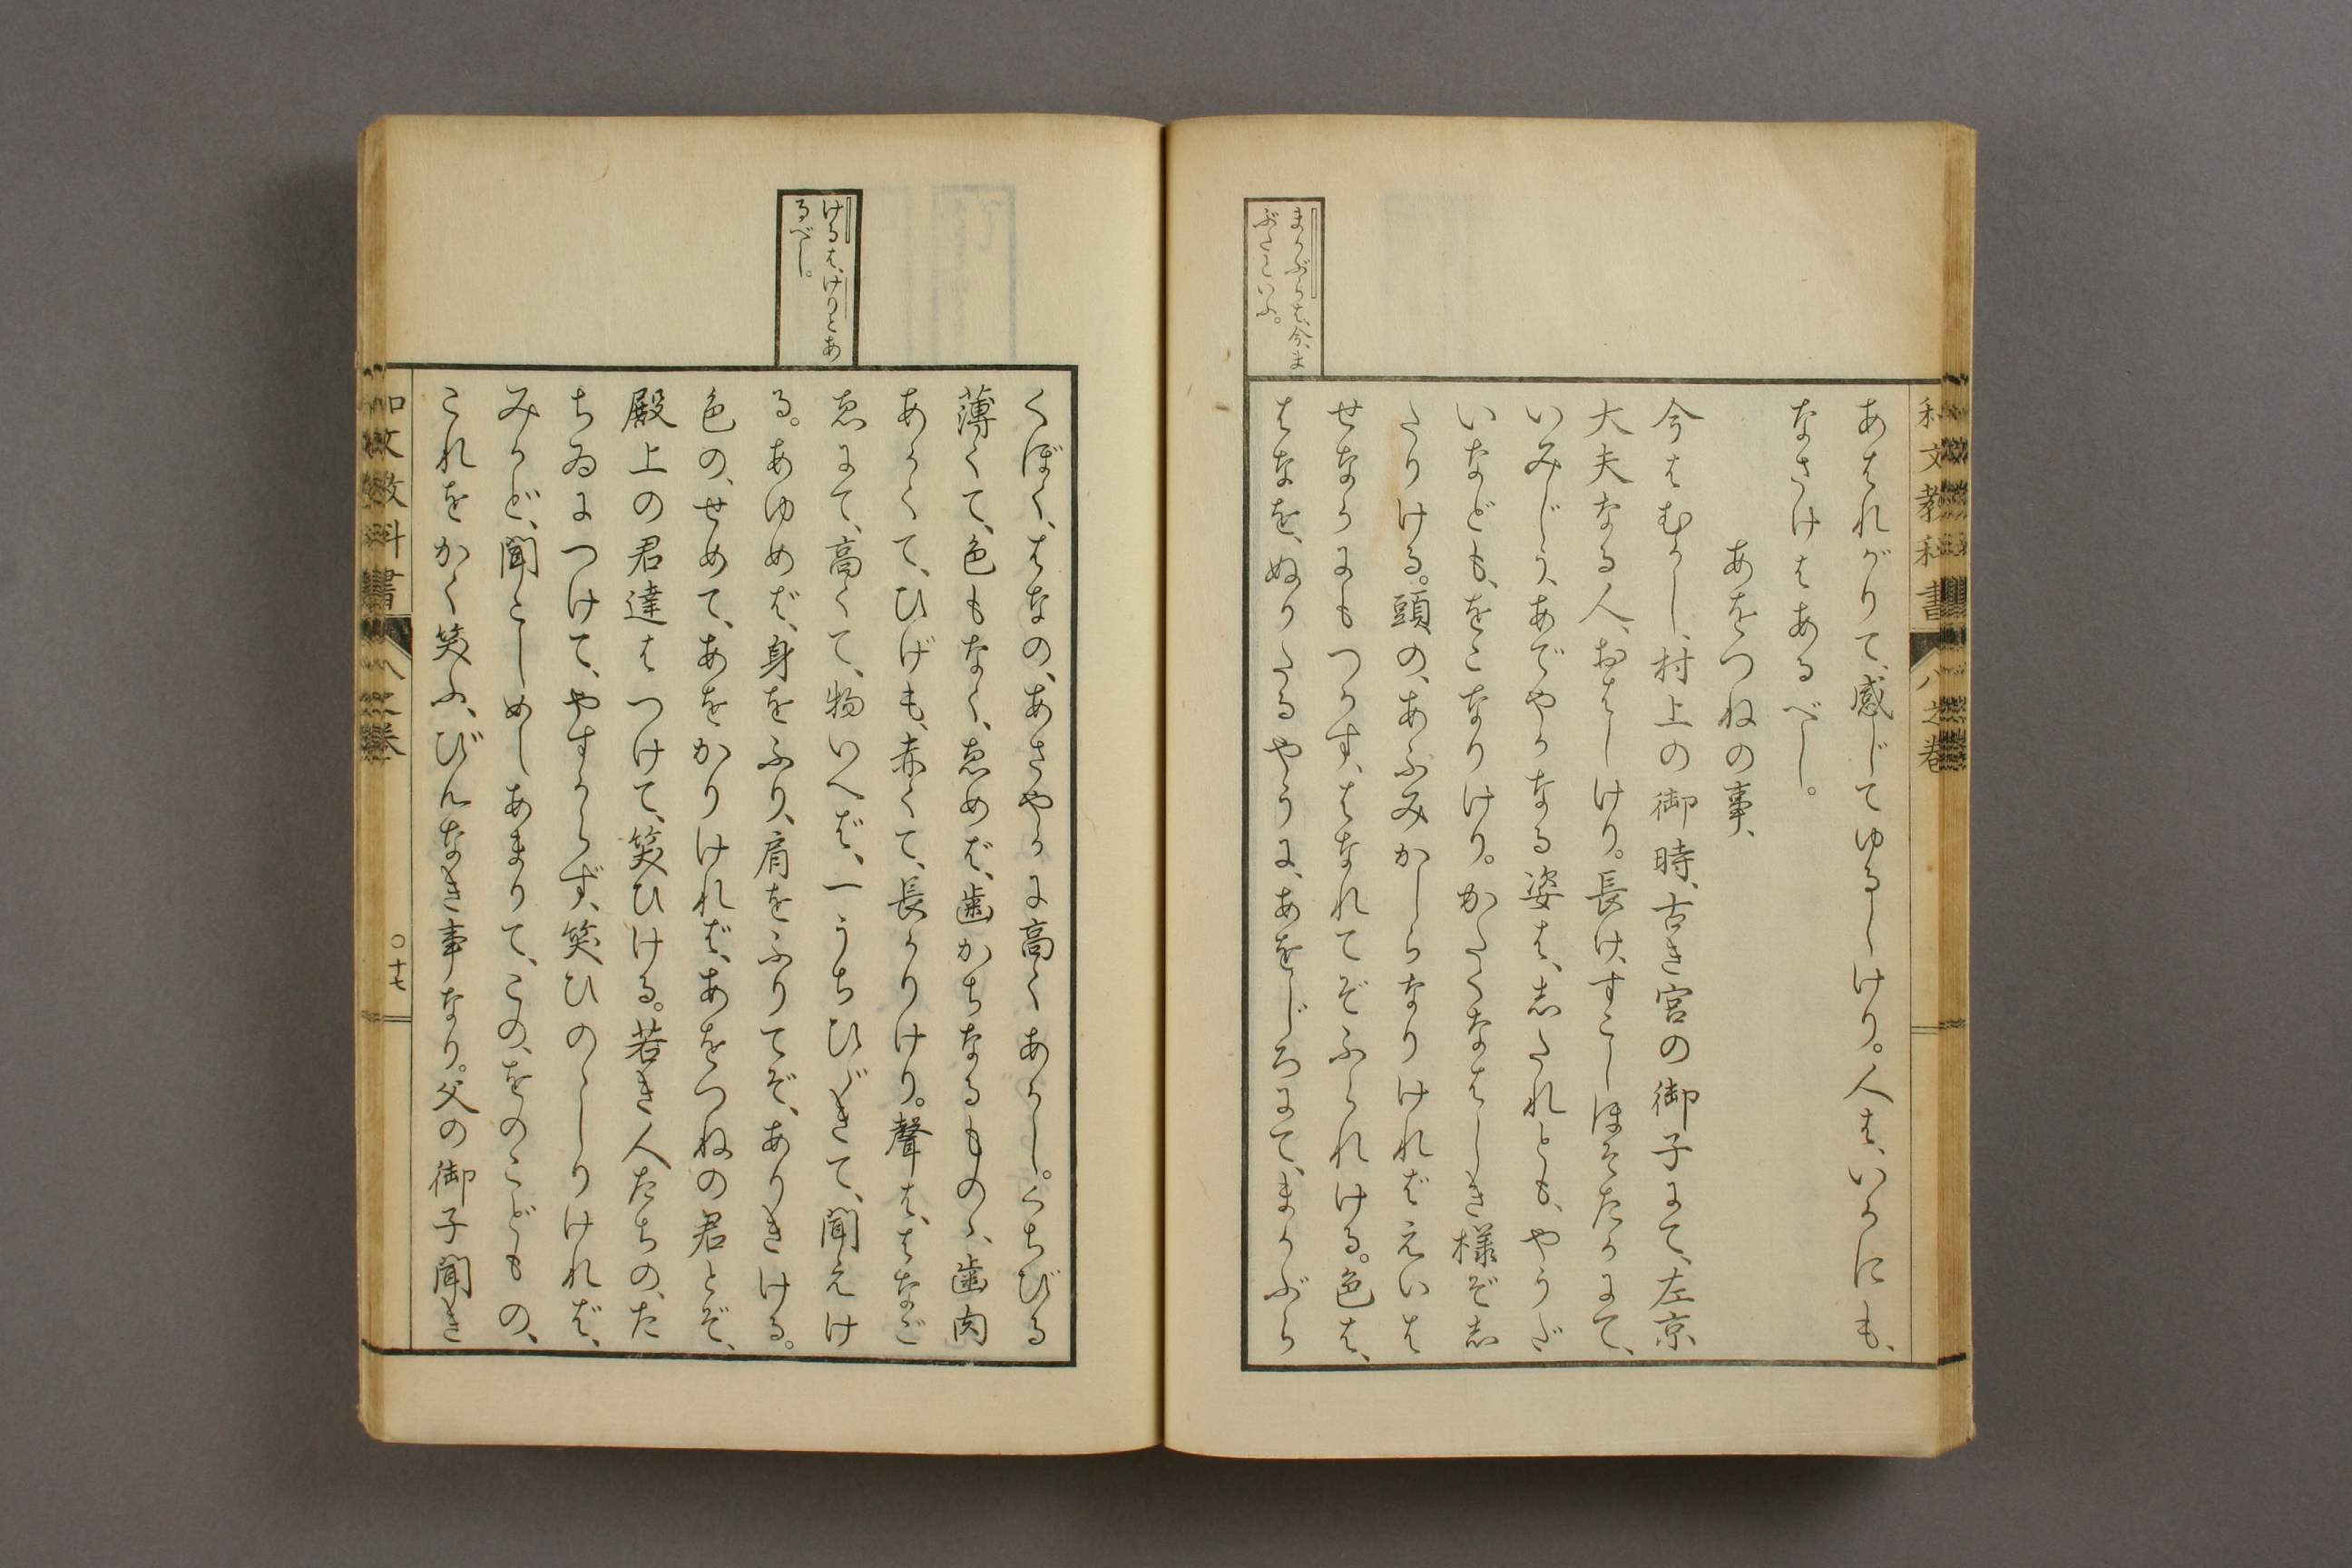 和文教科書 八之巻
まかぶらは、今、ま
ぶたといふ。
あはれがりて、感じてゆるしけり。人は、いかにも、
なさけはあるべし。
あをつねの事、
今はむかし、村上の御時、古き宮の御子にて、左京
大夫なる人、おはしけり。長け、すこしほそたかにて、
いみじう、あでやかなる姿は、志たれとも、やうだ
いなども、をこなりけり。かたくなはしき様ぞ志
たりける。頭の、あふみかしらなりければえいは
せなかにもつかす、はなれてぞふられける。色は、
はなを、ぬりたるやうに、あをじろにて、まかぶら
けるは、けりとあ
るべし。
くぼく、はなの、あさやかに高くあかし。くちびる
薄くて、色もなく、ゑめば、歯かちなるものゝ、歯肉
あかくて、ひげも、赤くて、長かりけり。聲は、はなご
ゑにて、高くて、物いへば、一うちひゞきて、聞えけ
る。あゆめば、身をふり、肩をふりてぞ、ありきける。
色の、せめて、あをかりければ、あをつねの君とぞ、
殿上の君達はつけて、笑ひける。若き人たちの、た
ちゐにつけて、やすからず、笑ひのゝしりければ、
みかど、聞こしめしあまりて、この、をのこどもの、
これをかく笑ふ、びんなき事なり。父の御子聞き
和文教科書 八之巻 〇十七